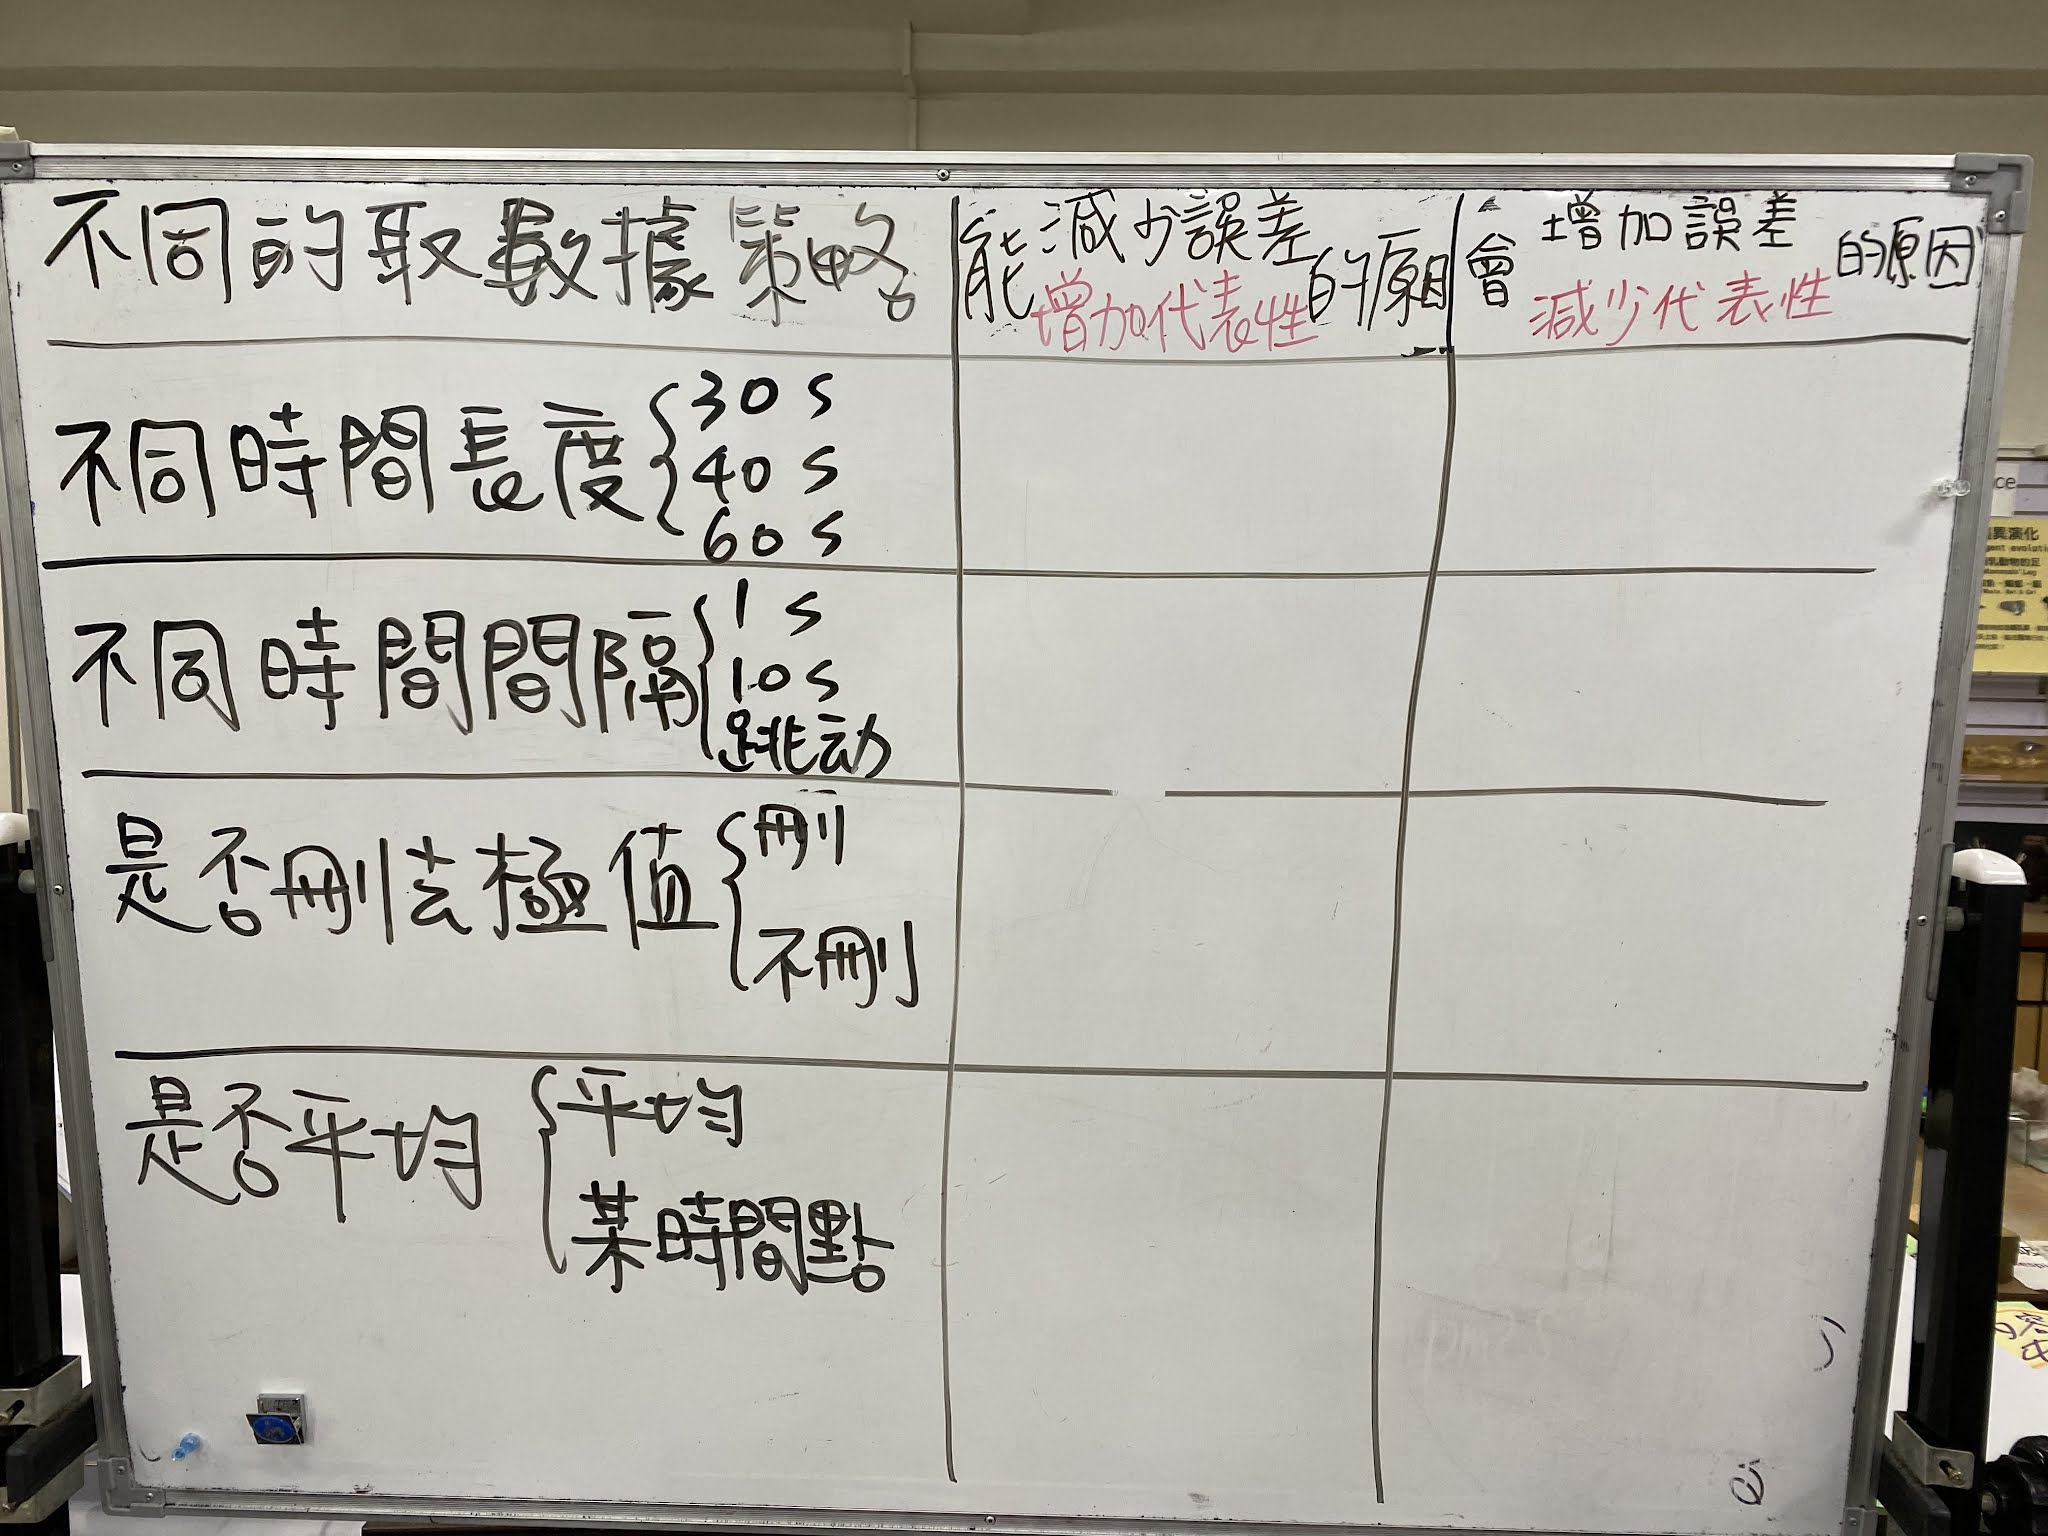 不同的取數據策略
能減少誤差的原因
增加代表性
會增加誤差的原因
減少代表性
不同時間長度
30s
40s
60s
不同時間間隔
1s
10s
跳动
是否刪去極值
刪
不刪
是否平均
平均
某時間點
ce
異演化